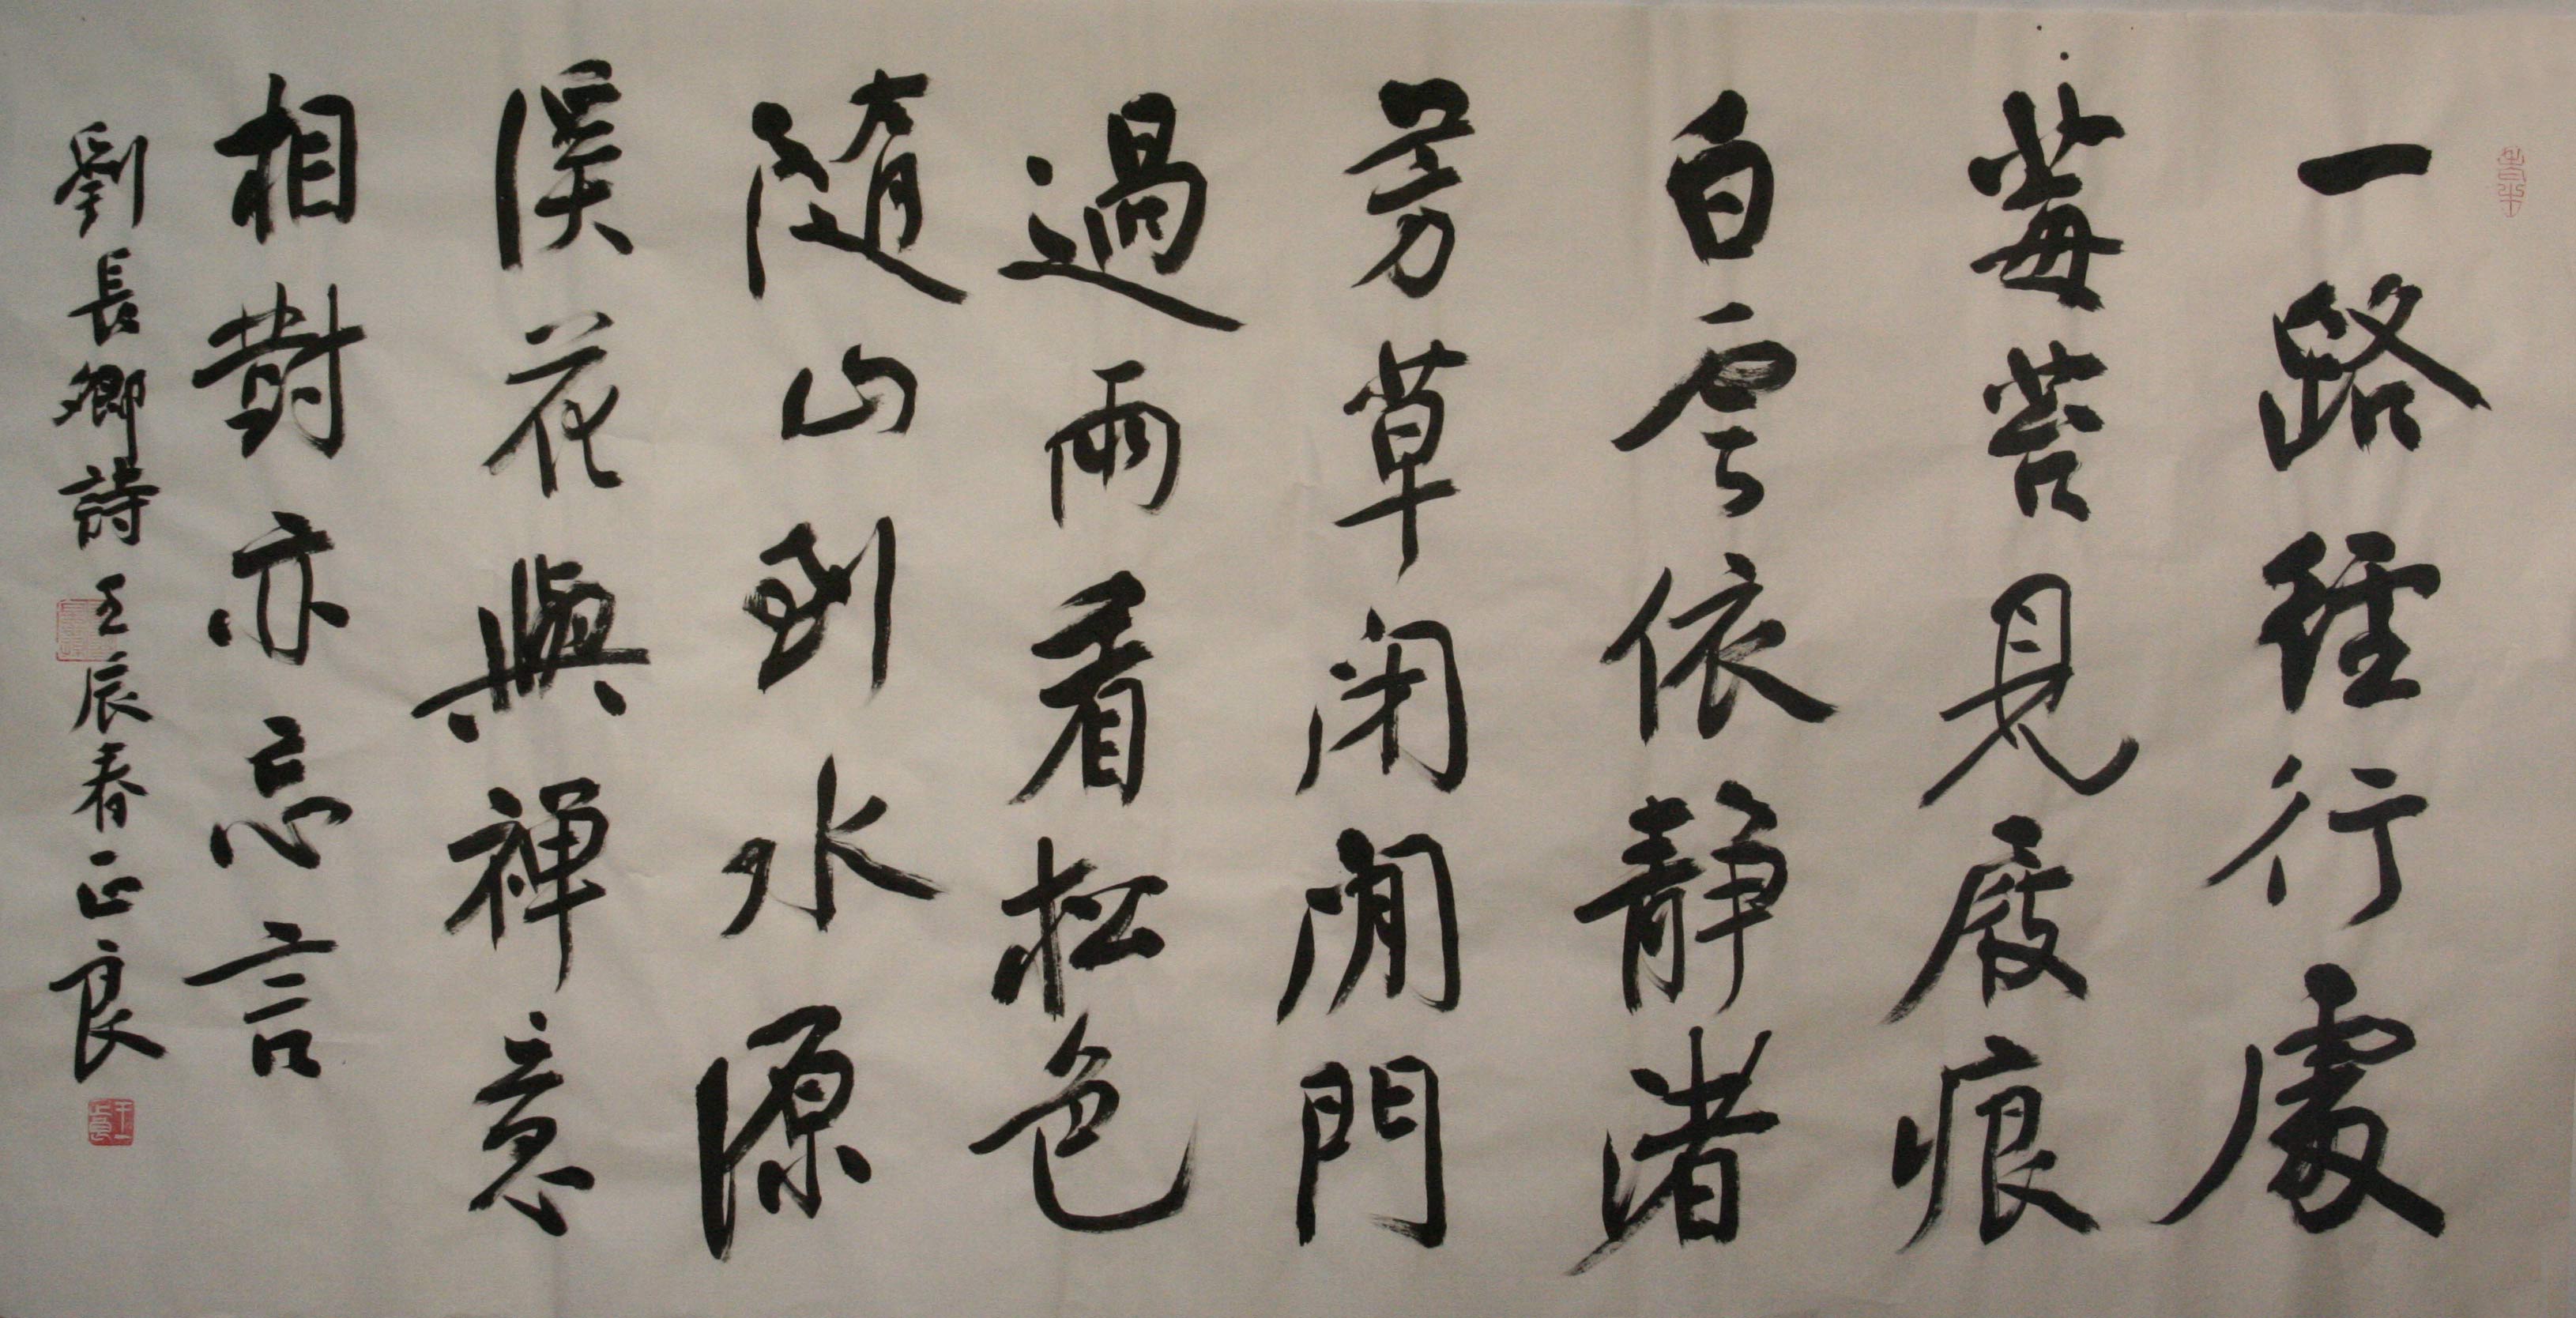 一路經行處
莓苔見屐痕
白雲依靜渚
芳草閉閒門
過雨看松色
隨山到水源
溪花與禪意
相對亦忘言
劉長卿詩 壬辰春正良